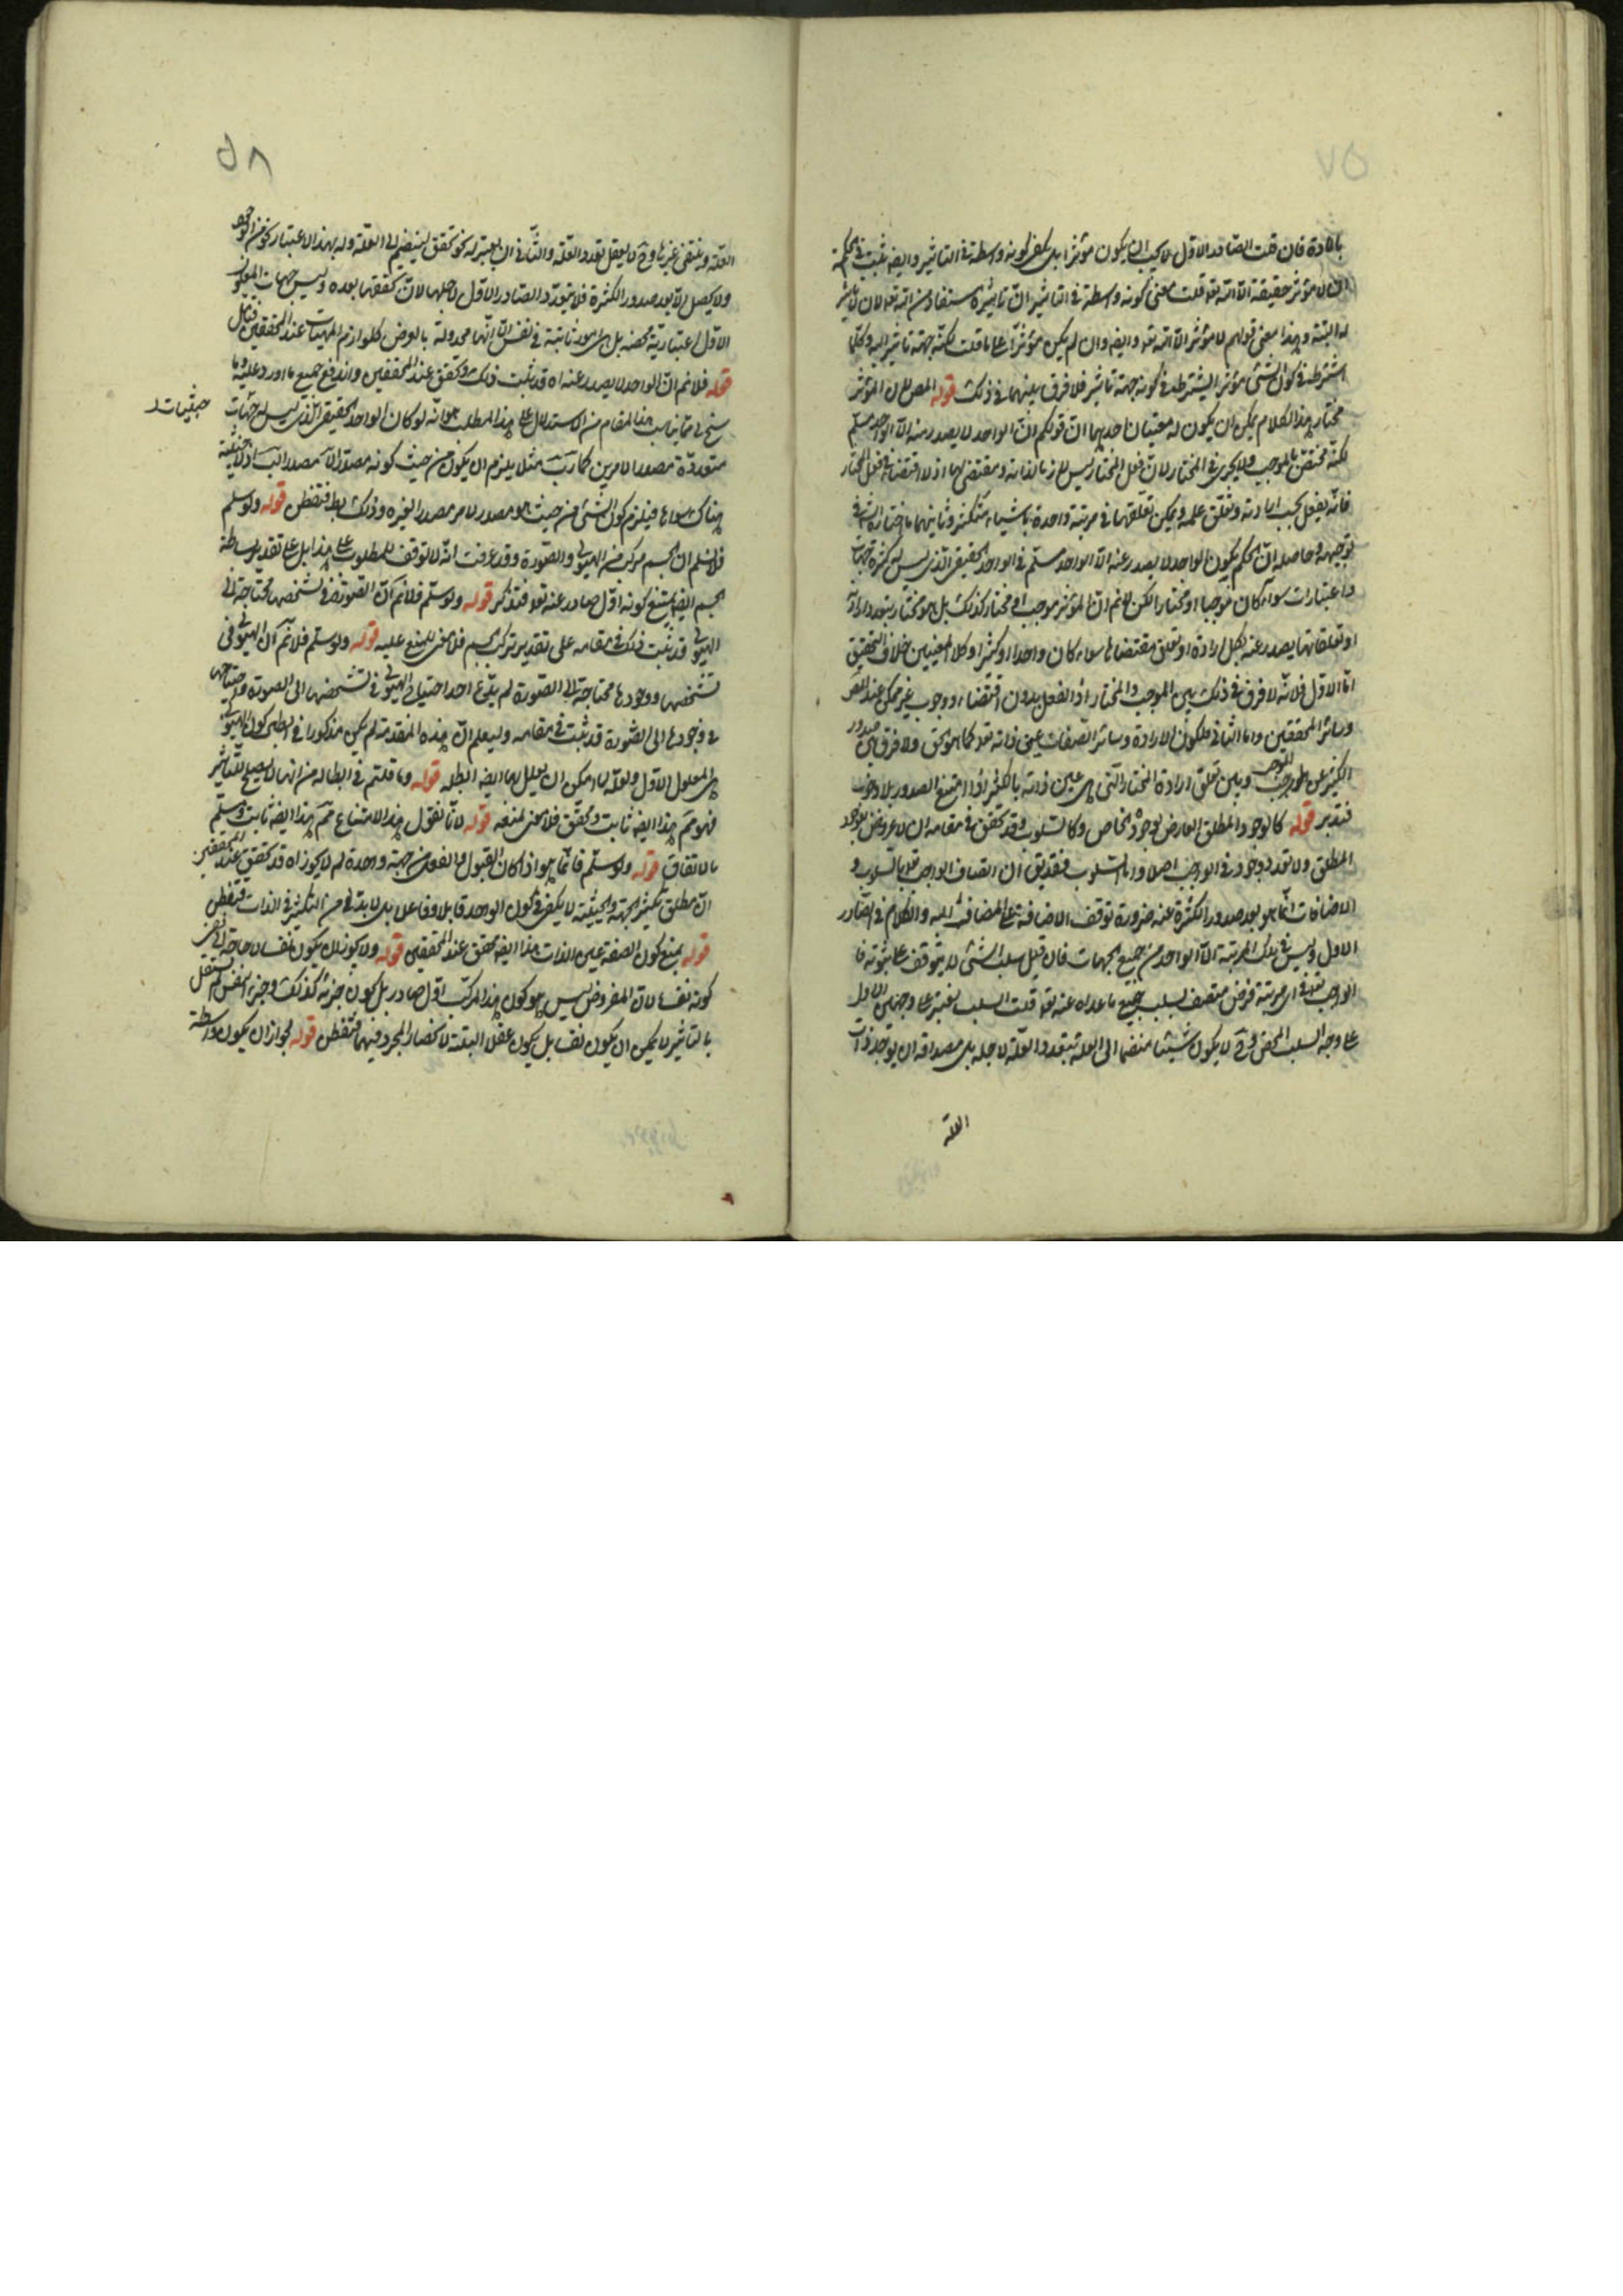 ٥٧
بالمادة فان قلت الصادر الاول لا يجب ان يكون مؤثرا بل يكفى كونه واسطة فى التاثير وايضا ثبت فى الحكمة
ان لا مؤثر حقيقة الا الله تعه قلت معنى كونه واسطة فى التاثير ان تاثيره مستفاد من الله تعه لا ان لا تاثير
له البتة وهذا معنى قولهم لا مؤثر الا الله تعه وايضا وان لم يكن مؤثرا على ما قلت لكنه جهة تاثير البتة وكلما
اشترط فى كون الشئ مؤثرا يشترط فى كونه جهة تاثير فلا فرق بينهما فى ذلك قوله المص لان المؤثر
مختار هذا الكلام يمكن ان يكون له معنيان احدهما ان قولكم ان الواحد لا يصدر منه الا الواحد مسلم
لكنه مختص بالموجب ولا يجرى فى المختار لان فعل المختار ليس لازما لذاته ومقتضى لها اذ لا اقتضاء لفعل المختار
فانه يفعل بحسب ارادته وتعلق علمه ويمكن تعلقهما فى مرتبة واحدة باشياء متكثرة وثانيهما ما اختاره الش فى
توجيهه وحاصله ان الحكم بكون الواحد لا يصدر عنه الا الواحد مسلم فى الواحد الحقيقى الذى ليس له كثرة جهات
واعتبارات سواء كان موجبا او مختارا لكن لا نم ان المؤثر موجب او مختار كذلك بل هو مختار يتعدد ارادته
او تعلقاتها يصدر عنه بكل ارادة او تعلق مقتضاها سواء كان واحدا او كثيرا وكلا المعنيين خلاف التحقيق
اما الاول فلانه لا فرق فى ذلك بين الموجب والمختار اذ الفعل بدون اقتضاء ووجوب غير ممكن عند المص
وسائر المحققين واما الثانى فلكون الارادة وسائر الصفات عين ذاته تعه كما هو الحق ولا فرق بين صدور
الكثير عن الموجب وبين تعلق ارادة المختار التى هى عين ذاته بالكثير اذا امتنع الصدور بلا وجوب
فتدبر قوله كالوجود المطلق العارض لوجوده الخاص وكالسلوب وقد تحقق فى مقامه ان لا عروض للوجود
المطلق ولا تعدد وجود فى الواجب اصلا واما السلوب فقد يق ان اتصاف الواجب تعه بالسلوب و
الاضافات انما هو بعد صدور الكثرة عنه ضرورة توقف الاضافة على المضاف اليه والكلام فى الصادر
الاول وليس فى تلك المرتبة الا الواحد من جميع الجهات فان قيل سلب الشئ لا يتوقف على ثبوته فا
لواجب تعه فى اى مرتبة فرض متصف بسلب جميع ما عداه عنه تعه قلت السلب يعتبر على وجهين الاول
على وجه السلب المحض وح لا يكون شيئا منضما الى العلة يتعدد العلة لاجله بل مصداقه ان يوجد ذات
العلة
٥٨
العلة وينتفى غيرها وح لا يعقل تعدد العلة والثانى ان يعتبر له نحو تحقق لينضم الى العلة وله بهذا الاعتبار نحو من الوجود
ولا يحصل الا بعد صدور الكثرة فلا يتعدد الصادر الاول لاجلها لان تحققها بعده وليس جهات المعلول
الاول اعتبارية محضة بل هى امور ثابتة فى نفس الا انها مجعولة بالعرض كلوازم المهيات عند المحققين فتامل
قوله فلا نم ان الواحد لا يصدر عنه اه قد ثبت ذلك وتحقق عند المحققين واندفع جميع ما اورد عليه وما
سنح لى مما يناسب هذا المقام من الاستدلال على هذا المطلب هو انه لو كان الواحد الحقيقى الذى ليس له جهات
حيثيات
متعددة مصدرا لامرين كآ وب مثلا يلزم ان يكون من حيث كونه مصدرا لآ مصدرا لب اذ لا حيثية
هناك سواها فيلزم كون الشئ من حيث هو مصدر لامر مصدرا لغيره وذلك بط فتفطن قوله ولو سلم
فلا نسلم ان الجسم مركب من الهيولى والصورة وقد عرفت انه لا توقف للمطلوب على هذا بل على تقدير بساطة
الجسم ايضا يمتنع كونه اول صادر عنه تعه فتذكر قوله ولو سلم فلا نم ان الصورة فى تشخصها محتاجة الى
الهيولى قد ثبت ذلك فى مقامه على تقدير تركب الجسم فلا معنى للمنع عليه قوله ولو سلم فلا نم ان الهيولى فى
تشخصها ووجودها محتاجة الى الصورة لم يدع احد احتياج الهيولى فى تشخصها الى الصورة واحتياجها
فى وجودها الى الصورة قد ثبت فى مقامه وليعلم ان هذه المقدمة لم يكن مذكورا فى ابطال كون الهيولى
هى المعلول الاول ولعله لما امكن ان يعلل بها ايضا ابطله قوله وما قلتم فى ابطاله من انها لا يصلح للتاثير
فهو مم هذا ايضا ثابت ومحقق فلا معنى لمنعه قوله لانا نقول هذا الامتناع مم هذا ايضا ثابت ومسلم
بالاتفاق قوله ولو سلم فانما هو اذا كان القبول والفعل من جهة واحدة لم لا يجوز اه قد تحقق عند المحققين
ان مطلق تكثير الجهة والحيثية لا يكفى فى كون الواحد قابلا وفاعلا بل لابد فى من التكثير فى الذات فتفطن
قوله يمنع كون الصفة عين الذات هذا ايضا محقق عند المحققين قوله ولا يجوز ان يكون نفسا لاحاجة الى نفى
كونه نفسا لان المفروض ليس هو كون هذا المركب اول صادر بل كون جزئه كذلك وجزء النفس لم يستقل
بالتاثير لا يمكن ان يكون نفسا بل يكون عقلا البتة لانحصار المجرد فيهما فتفطن قوله لجواز ان يكون واسطة